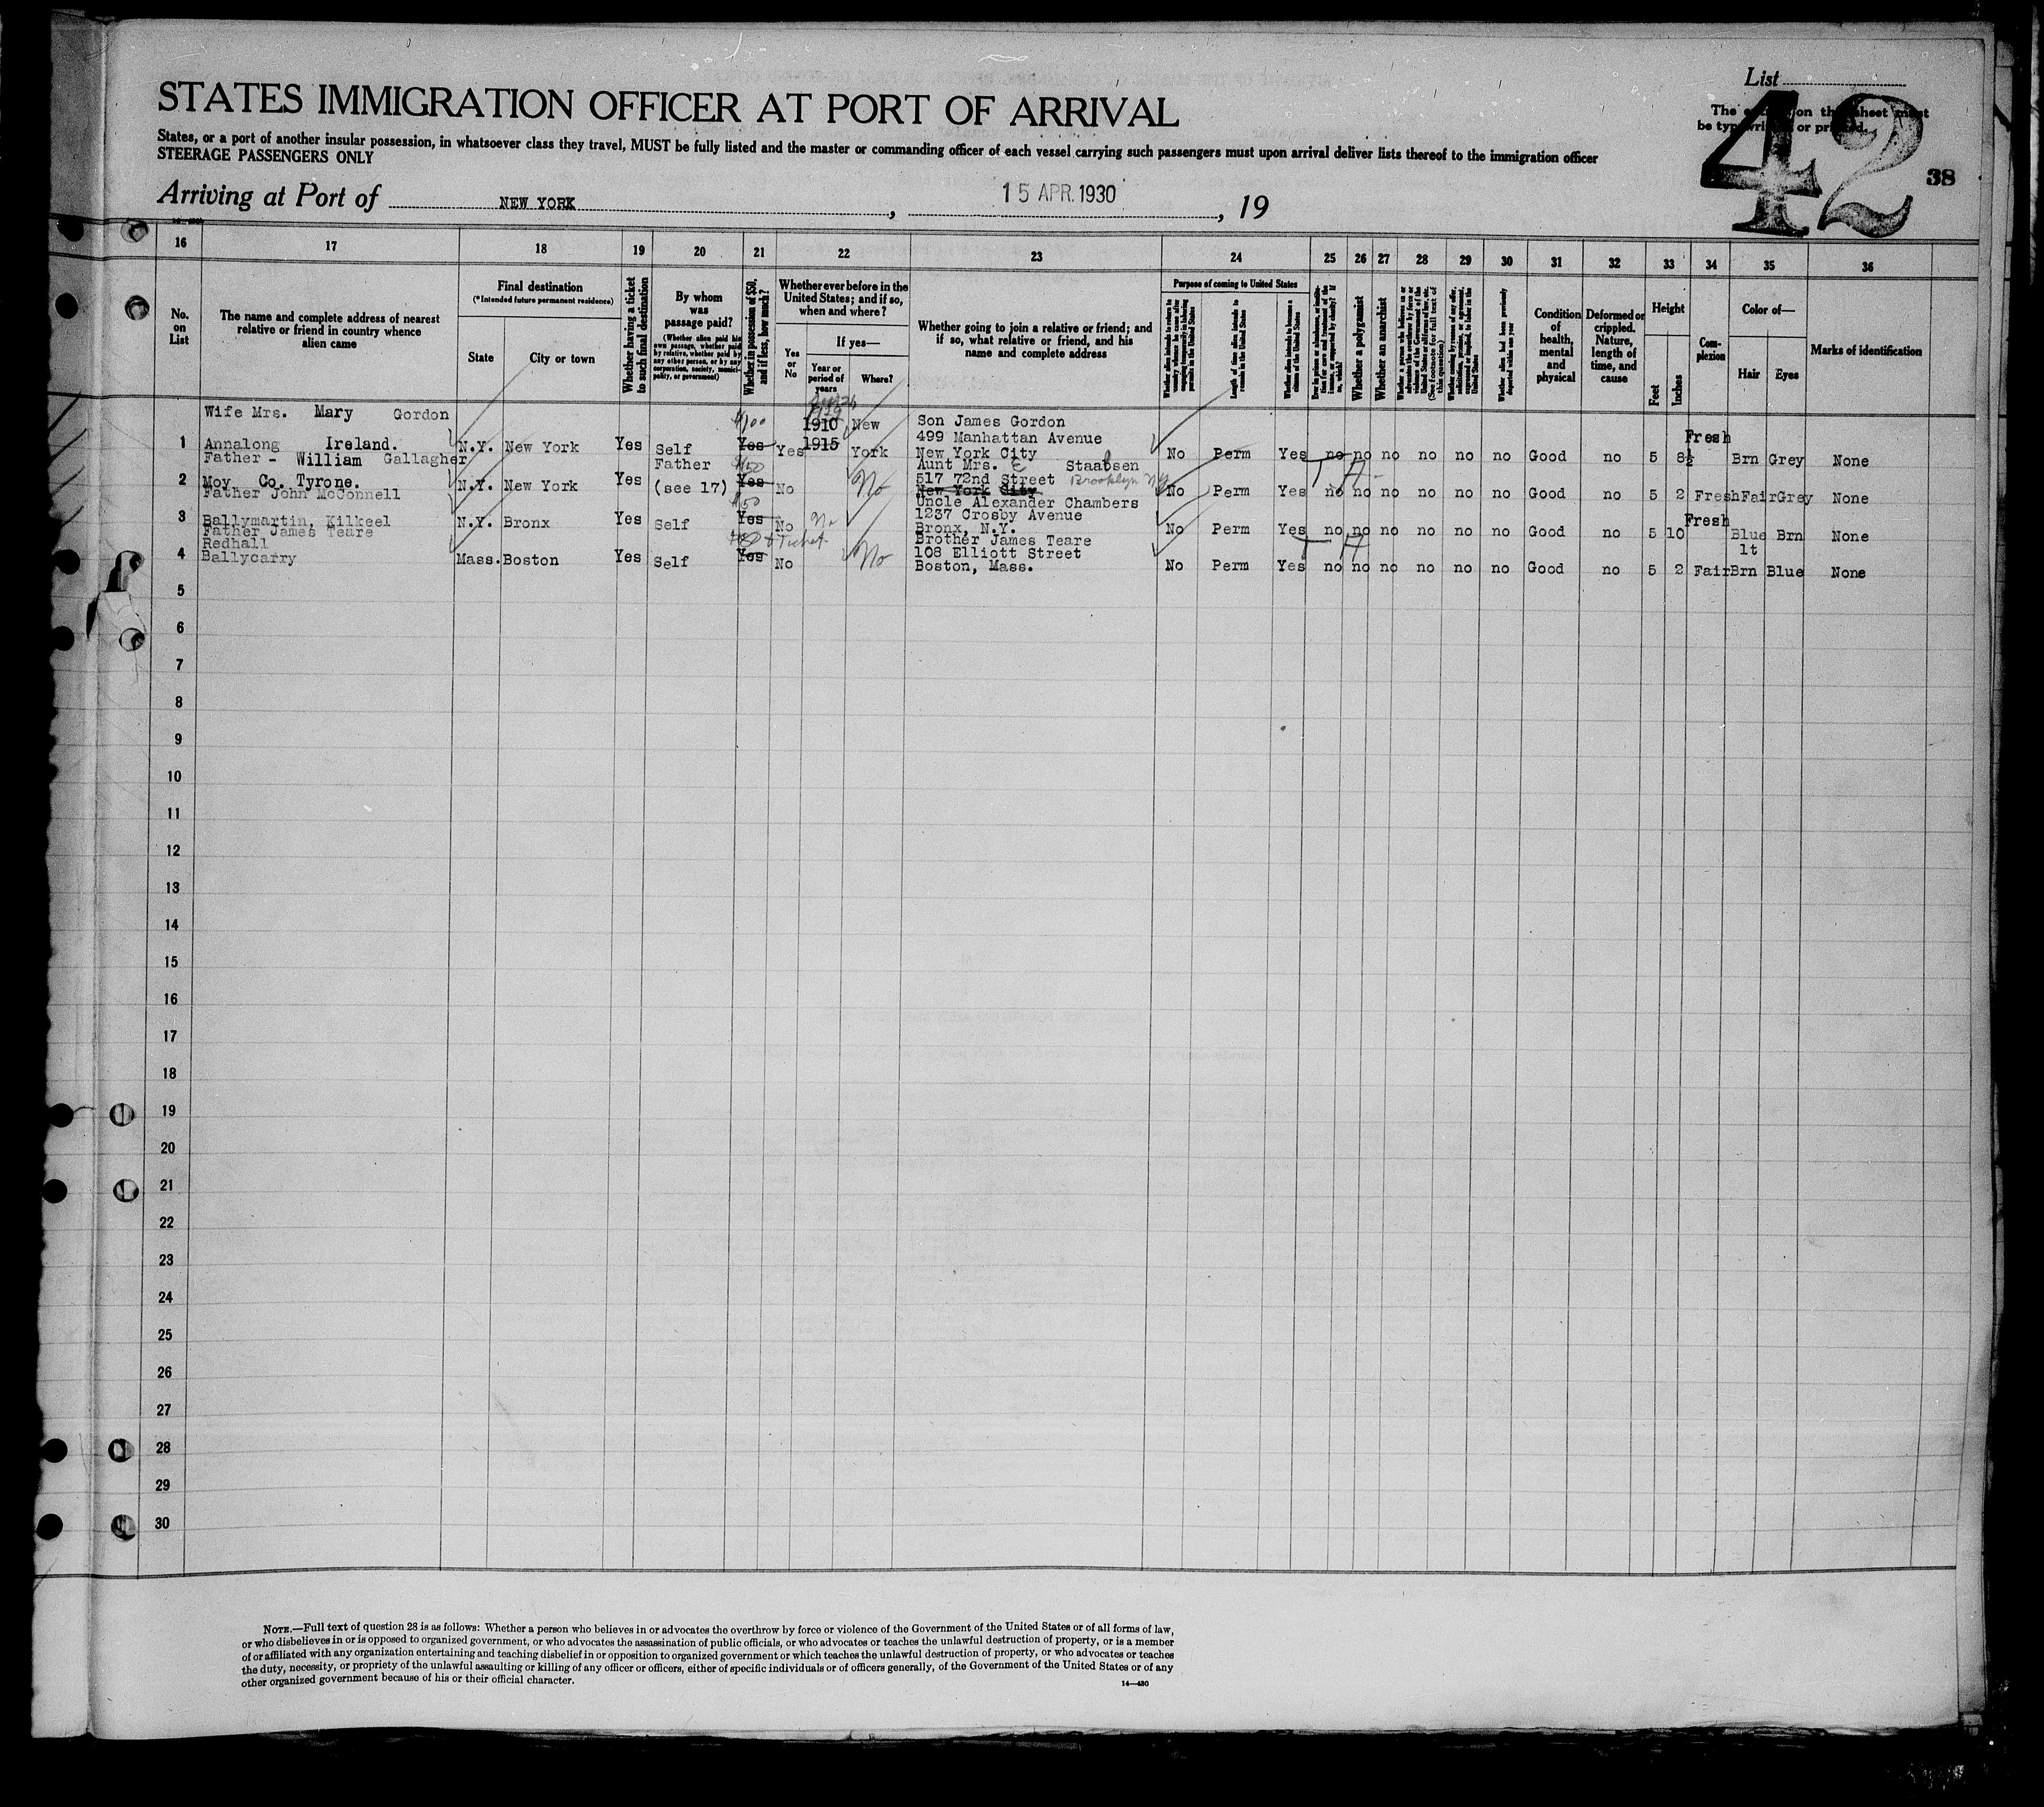 List
42
The on this sheet must
be typewritten or printed.
38
STATES IMMIGRATION OFFICER AT PORT OF ARRIVAL
States, or a port of another insular possession, in whatsoever class they travel, MUST be fully listed and the master or commanding officer of each vessel carrying such passengers must upon arrival deliver lists thereof to the immigration officer
STEERAGE PASSENGERS ONLY
Arriving at Port of NEW YORK, 15 APR. 1930, 19
16 17 18 19 20 21 22 23 24 25 26 27 28 29 30 31 32 33 34 35 36
No. on List
The name and complete address of nearest relative or friend in country whence alien came
Final destination
(*Intended future permanent residence)
State
City or town
Whether having a ticket to such final destination
By whom was passage paid?
(Whether alien paid his own passage, whether paid by relative, whether paid by any other person, or by any corporation, society, municipality, or government)
Whether in possession of $50, and if less, how much?
Whether ever before in the United States; and if so, when and where?
Yes or No
If yes—
Year or period of years
Where?
Whether going to join a relative or friend; and if so, what relative or friend, and his name and complete address
Purpose of coming to United States
Length of time alien intends to remain in the United States
Whether alien intends to become a citizen of the United States
Whether a polygamist
Whether an anarchist
(See footnote for full text of this question)
Whether alien had been previously deported within one year
Condition of health, mental and physical
Deformed or crippled. Nature, length of time, and cause
Height
Feet
Inches
Complexion
Color of—
Hair
Eyes
Marks of identification
Wife Mrs. Mary Gordon $100 1910 New Son James Gordon
499 Manhattan Avenue Fresh
1 Annalong Ireland. N.Y. New York Yes Self Yes Yes 1915 York New York City No Perm Yes no no no no no no Good no 5 8½ Brn Grey None
Father - William Gallagher Father $50 Aunt Mrs. E Staabsen
2 Moy Co. Tyrone. N.Y. New York Yes (see 17) Yes No No 517 72nd Street Brooklyn NY
New York City No Perm Yes no no no no no no Good no 5 2 Fresh Fair Grey None
Father John McConnell $50 Uncle Alexander Chambers
1237 Crosby Avenue Fresh
3 Ballymartin, Kilkeel N.Y. Bronx Yes Self Yes No No Bronx, N.Y. No Perm Yes no no no no no no Good no 5 10 Blue Brn None
Father James Teare + Ticket Brother James Teare
Redhall 108 Elliott Street lt
4 Ballycarry Mass. Boston Yes Self Yes No No Boston, Mass. No Perm Yes no no no no no no Good no 5 2 Fair Brn Blue None
5
6
7
8
9
10
11
12
13
14
15
16
17
18
19
20
21
22
23
24
25
26
27
28
29
30
NOTE.—Full text of question 28 is as follows: Whether a person who believes in or advocates the overthrow by force or violence of the Government of the United States or of all forms of law,
or who disbelieves in or is opposed to organized government, or who advocates the assassination of public officials, or who advocates or teaches the unlawful destruction of property, or is a member
of or affiliated with any organization entertaining and teaching disbelief in or opposition to organized government or which teaches the unlawful destruction of property, or who advocates or teaches
the duty, necessity, or propriety of the unlawful assaulting or killing of any officer or officers, either of specific individuals or of officers generally, of the Government of the United States or of any
other organized government because of his or their official character.
14—430